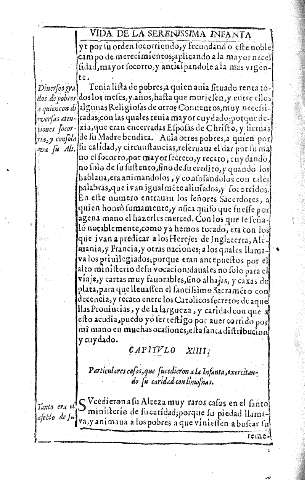 VIDA DE LA SERENISSIMA INFANTA
y por su orden socorriendo, y fecundando este noble
campo de merecimientos, aplicando a la mayor neces
sidad, mayor socorro, y anticipandole a la mas vrgen
te.
Diuersos gra
dos de pobres
a quien con di
uersas aten
ciones socor
ria, y consola
ua su Al.
Tenia lista de pobres, a quien auia situado renta to
dos los meses, y años, hasta que muriessen, y entre ellos
algunas Religiosas de otros Conuentos, muy necessi-
tadas, con las quales tenia mayor cuydado: porque de-
zia, que eran encerradas Esposas de Christo, y sieruas
de su Madre bendita. Auia otros pobres, a quien por
su calidad, y circunstancias, reseruaua el dar por su ma
no el socorro, por mayor secreto, y recato, cuydando,
no solo de su sustento, sino de su credito, y quando los
hablaua, era animandolos, y consolandolos con tales
palabras, que iuan igualmente aliuiados, y socorridos.
En este numero entrauan los señores Sacerdotes, a
quien honrò sumamente, y nūca quiso que fuesse por
agena mano el hazerles merced. Con los que se seña-
lò notablemente, como ya hemos tocado, era con los
que iuan a predicar a los Hereges de Inglaterra, Ale-
mania, y Francia, y otras naciones: a los quales llama-
ua los priuilegiados, porque eran antepuestos por el
alto ministerio de su vocacion: dauales no solo para el
viaje, y cartas muy fauorables, sino alhajas, y caxas de
plata, para que lleuassen el santissimo Sacramēto con
decencia, y recato entre los Catolicos secretos de aque
llas Prouincias, y de la largueza, y caridad con que a
esto acudia, puedo yo ser testigo por auer corrido por
mi mano en muchas ocasiones, esta santa distribucion,
y cuydado.
CAPITVLO XIIII;
Particulares casos, que sucedieron a la Infanta, exercitan-
do su caridad con muchas.
Tanto era el
assedio de
SVcedieron a su Alteza muy raros casos en el santo
ministerio de su caridad; porque su piedad llama-
ua, y animaua a los pobres a que viniessen a buscar su
reme-